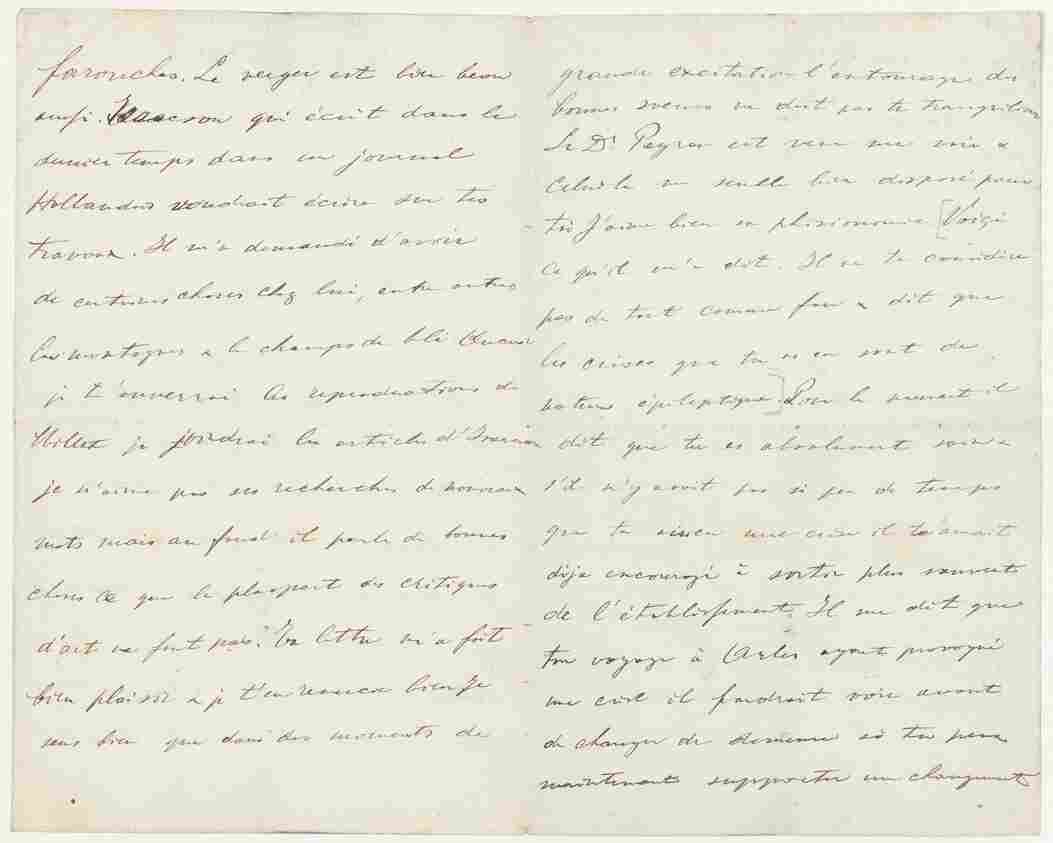 farouches. Le verger est bien beau
aussi. Isaäcson qui écrit dans le
dernier temps dans un journal
Hollandais voudrait écrire sur tes
travaux. Il m'a demandé d'avoir
de certaines choses chez lui, entre autres
les montagnes & le champs de blé Quand
je t'enverrai les reproductions de
Millet je joindrai les articles d'Isaäcson
je n'aime pas ses recherches de nouveaux
mots mais au fond il parle de bonnes
choses ce que la pluspart des critiques
d'art ne font pas. Ta lettre m'a fait
bien plaisir & je t'en remercie bien Je
sens bien que dans des moments de
grande excitation l'entourage des
bonnes soeurs ne doit pas te tranquiliser
Le Dr Peyron est venu me voir &
Celuila me semble bien disposé pour
toi J'aime bien sa phisionomie [Voiçi
ce qu'il m'a dit. Il ne te considère
pas du tout comme fou & dit que
les crises que tu as eu sont de
nature épileptique.] Pour le moment il
dit que tu es absolument sain &
s'il n'y avait pas si peu de temps
que tu une crise il t'aurait
dèja encouragé à sortir plus souvent
de l'établissement. Il me dit que
ton voyage à Arles ayant provoqué
une crise il faudrait voir avant
de changer de demeure si tu peux
maintenant supporter un changement